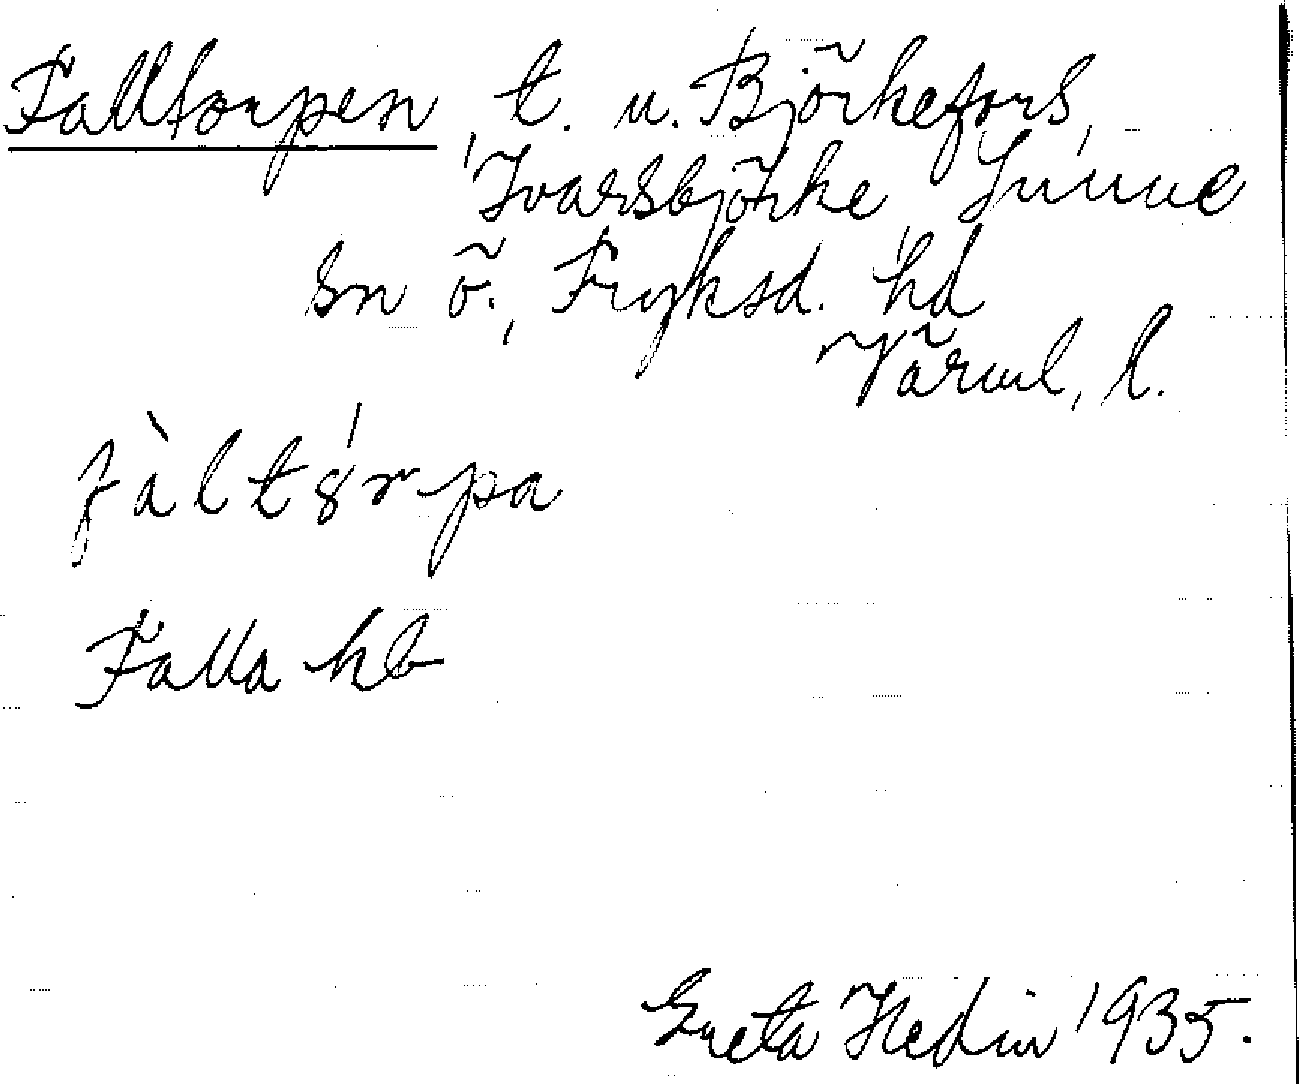 Falltorpen, t. u. Björkefors,
Ivarsbjörke, Sunne
sn ö., Fryksd. hd
Värml. l.
fàltǿrpa
Falla hb
Greta Hedin 1935.